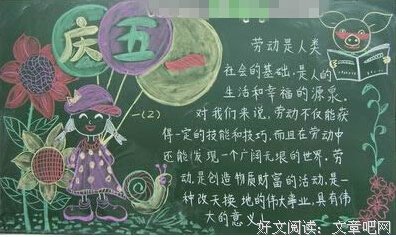 庆五一
一(2)
劳动是人类
社会的基础,是人的
生活和幸福的源泉。
对我们来说,劳动不仅能获
得一定的技能和技巧,而且在劳动中
还能发现一个广阔无垠的世界。劳
动,是创造物质财富的活动,是一
种改天换地的伟大事业,具有伟
大的意义!
好文阅读:文章吧网